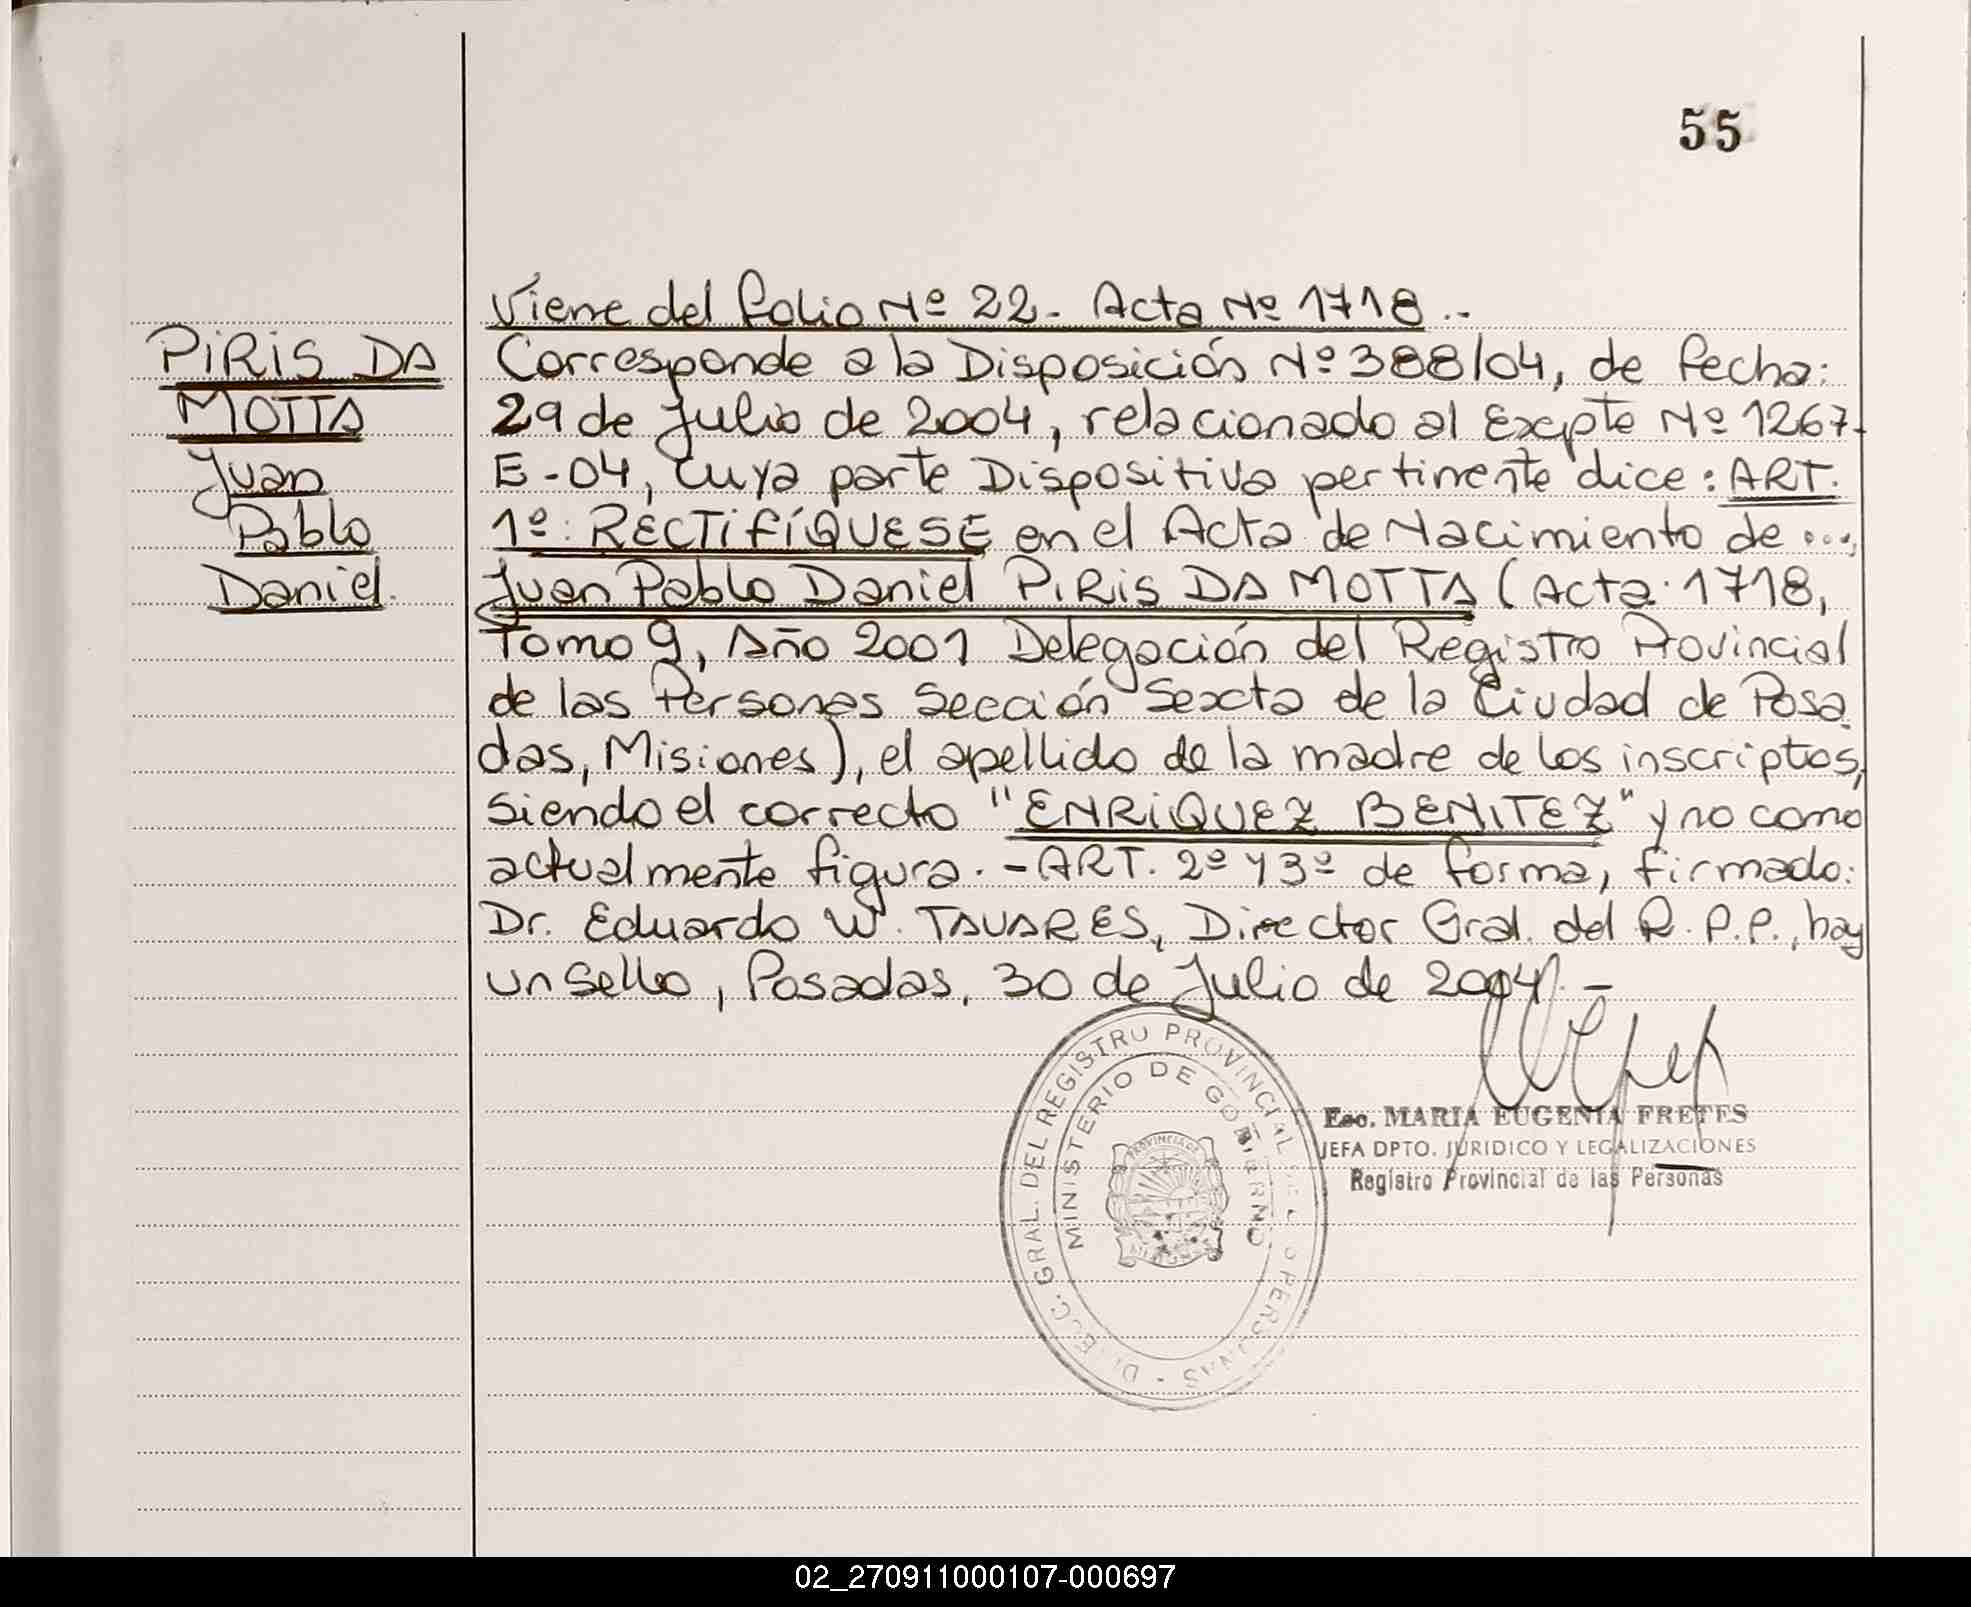 55
Viene del folio Nº 22 - Acta Nº 1718 ..
PIRIS DA
MOTTA
Juan
Pablo
Daniel.
Corresponde a la Disposición Nº 388/04, de fecha:
29 de Julio de 2004, relacionado al Expte Nº 1267-
E-04, cuya parte Dispositiva pertinente dice: ART.
1º: RECTIFÍQUESE en el Acta de Nacimiento de ...,
Juan Pablo Daniel PIRIS DA MOTTA (Acta 1718,
Tomo 9, Año 2001 Delegación del Registro Provincial
de las Personas Sección Sexta de la Ciudad de Posa
das, Misiones), el apellido de la madre de los inscriptos,
siendo el correcto "ENRIQUEZ BENITEZ" y no como
actualmente figura. - ART. 2º y 3º de forma, firmado:
Dr. Eduardo W. TAVARES, Director Gral. del R.P.P., hay
un sello, Posadas, 30 de Julio de 2004. -
DIREC. GRAL. DEL REGISTRO PROVINCIAL PERSONAS
MINISTERIO DE GOBIERNO
PROVINCIA DE
MISIONES
Esc. MARIA EUGENIA FRETES
JEFA DPTO. JURIDICO Y LEGALIZACIONES
Registro Provincial de las Personas
02_270911000107-000697